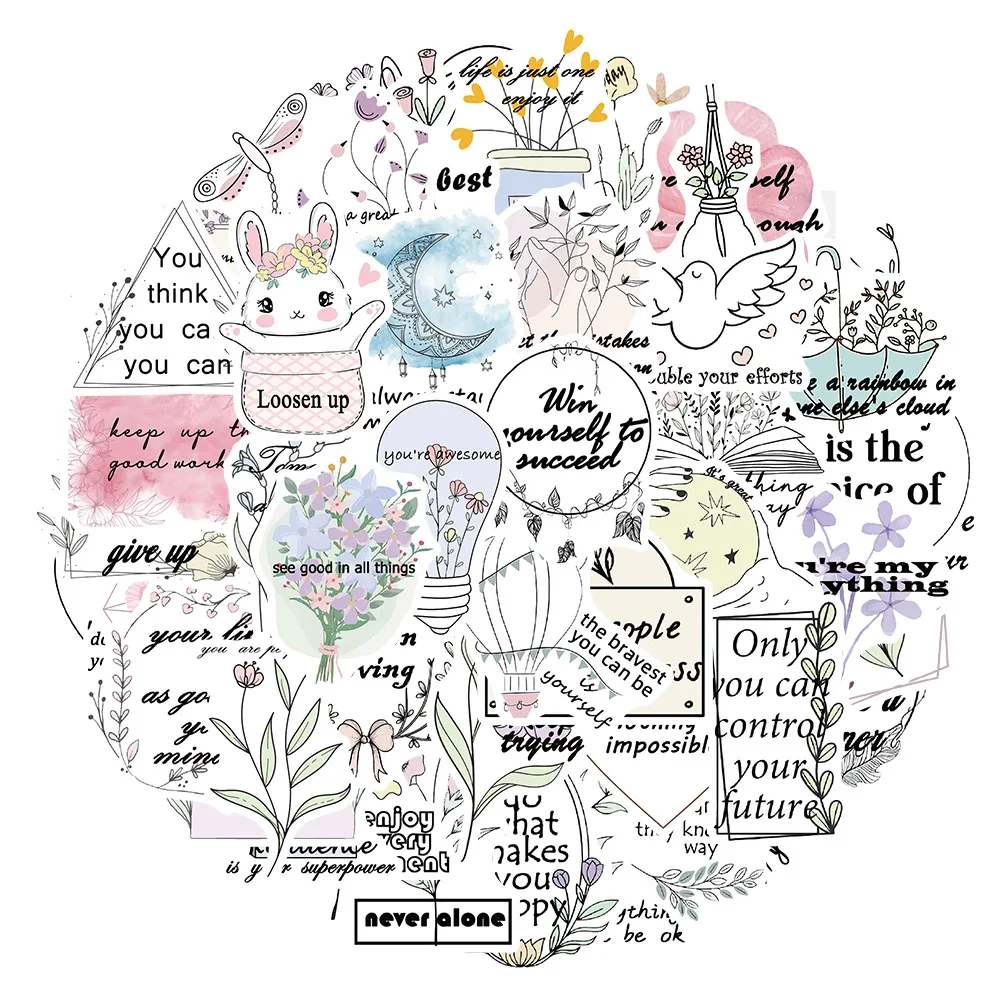 life is just one
enjoy it
day
best
a great
self
ough
You
think
you ca
you can
Loosen up
takes
uble your efforts
e a rainbow in
ne else's cloud
Win
yourself to
succeed
always stay
you're awesome
keep up th
good work
is the
ice of
It's great
thing
ry
see good in all things
give up
're my
ything
your li
you are pe
ving
ople
ss
the bravest
you can be
is
yourself
Only
you can
control
your
future
as go
yo
mind
trying
impossibl
enjoy
very
ent
is y r superpower
hat
akes
you
ppy
they kno
way
never alone
ythin
be ok